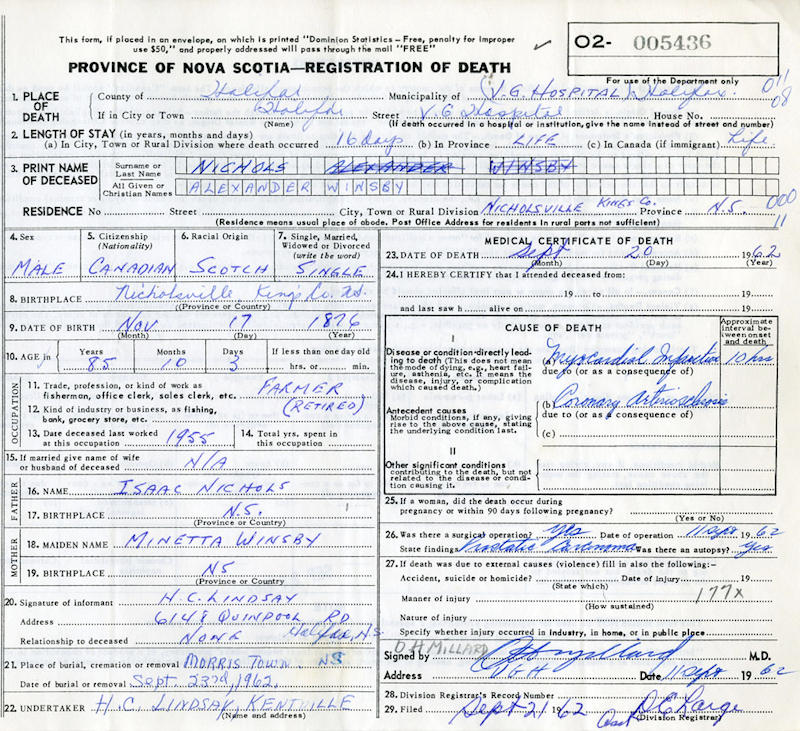 This form, if placed in an envelope, on which is printed "Dominion Statistics – Free, penalty for improper
use $50," and properly addressed will pass through the mail "FREE"
O2- 005436
PROVINCE OF NOVA SCOTIA—REGISTRATION OF DEATH
For use of the Department only
011
08
1. PLACE OF DEATH County of Halifax Municipality of (V.G. HOSPITAL) Halifax.
If in City or Town Halifax (Name) Street V.G Hospital House No.
(If death occurred in a hospital or institution, give the name instead of street and number)
2. LENGTH OF STAY (in years, months and days)
(a) In City, Town or Rural Division where death occurred 16 days (b) In Province LIFE (c) In Canada (if immigrant) Life
3. PRINT NAME OF DECEASED Surname or Last Name NICHOLS ALEXANDER WINSBY
All Given or Christian Names ALEXANDER WINSBY
RESIDENCE No Street City, Town or Rural Division NICHOLSVILLE KINGS CO. Province N.S. 000
11
(Residence means usual place of abode. Post Office Address for residents in rural parts not sufficient)
4. Sex 5. Citizenship (Nationality) 6. Racial Origin 7. Single, Married, Widowed or Divorced (write the word)
MALE CANADIAN SCOTCH SINGLE
8. BIRTHPLACE Nicholsville Kings Co. N.S.
(Province or Country)
9. DATE OF BIRTH Nov 17 1876
(Month) (Day) (Year)
10. AGE in Years Months Days If less than one day old
85 10 3 hrs. or min.
OCCUPATION
11. Trade, profession, or kind of work as fisherman, office clerk, sales clerk, etc. FARMER
12. Kind of industry or business, as fishing, bank, grocery store, etc. (RETIRED)
13. Date deceased last worked at this occupation 1955 14. Total yrs. spent in this occupation
15. If married give name of wife or husband of deceased N/A
FATHER
16. NAME ISAAC NICHOLS
17. BIRTHPLACE N.S.
(Province or Country)
MOTHER
18. MAIDEN NAME MINETTA WINSBY
19. BIRTHPLACE NS
(Province or Country)
20. Signature of informant H.C. LINDSAY
Address 6148 QUINPOOL RD
Halifax, N.S.
Relationship to deceased NONE
21. Place of burial, cremation or removal MORRIS TOWN NS
Date of burial or removal Sept. 23rd, 1962.
22. UNDERTAKER H.C. LINDSAY, KENTVILLE
(Name and address)
MEDICAL CERTIFICATE OF DEATH
23. DATE OF DEATH Sept 20 1962
(Month) (Day) (Year)
24. I HEREBY CERTIFY that I attended deceased from:
19 to 19
and last saw h alive on 19
CAUSE OF DEATH Approximate interval between onset and death
I
Disease or condition directly leading to death (This does not mean the mode of dying, e.g., heart failure, asthenia, etc. It means the disease, injury, or complication which caused death.)
(a) Myocardial Infarction 10 hrs
due to (or as a consequence of)
Antecedent causes
Morbid conditions, if any, giving rise to the above cause, stating the underlying condition last.
(b) Coronary Arteriosclerosis
due to (or as a consequence of)
(c)
II
Other significant conditions
contributing to the death, but not related to the disease or condition causing it.
25. If a woman, did the death occur during pregnancy or within 90 days following pregnancy?
(Yes or No)
26. Was there a surgical operation? Yes Date of operation 11 Sept 1962
State findings Prostatic Carcinoma Was there an autopsy? Yes
27. If death was due to external causes (violence) fill in also the following:-
Accident, suicide or homicide? Date of injury 19
(State which)
177x
Manner of injury
(How sustained)
Nature of injury
Specify whether injury occurred in industry, in home, or in public place
O H MILLARD
Signed by OH Millard M.D.
Address VGH Date 11 Sept 1962
28. Division Registrar's Record Number
29. Filed Sept 21 1962 D.E. Large
(Division Registrar)